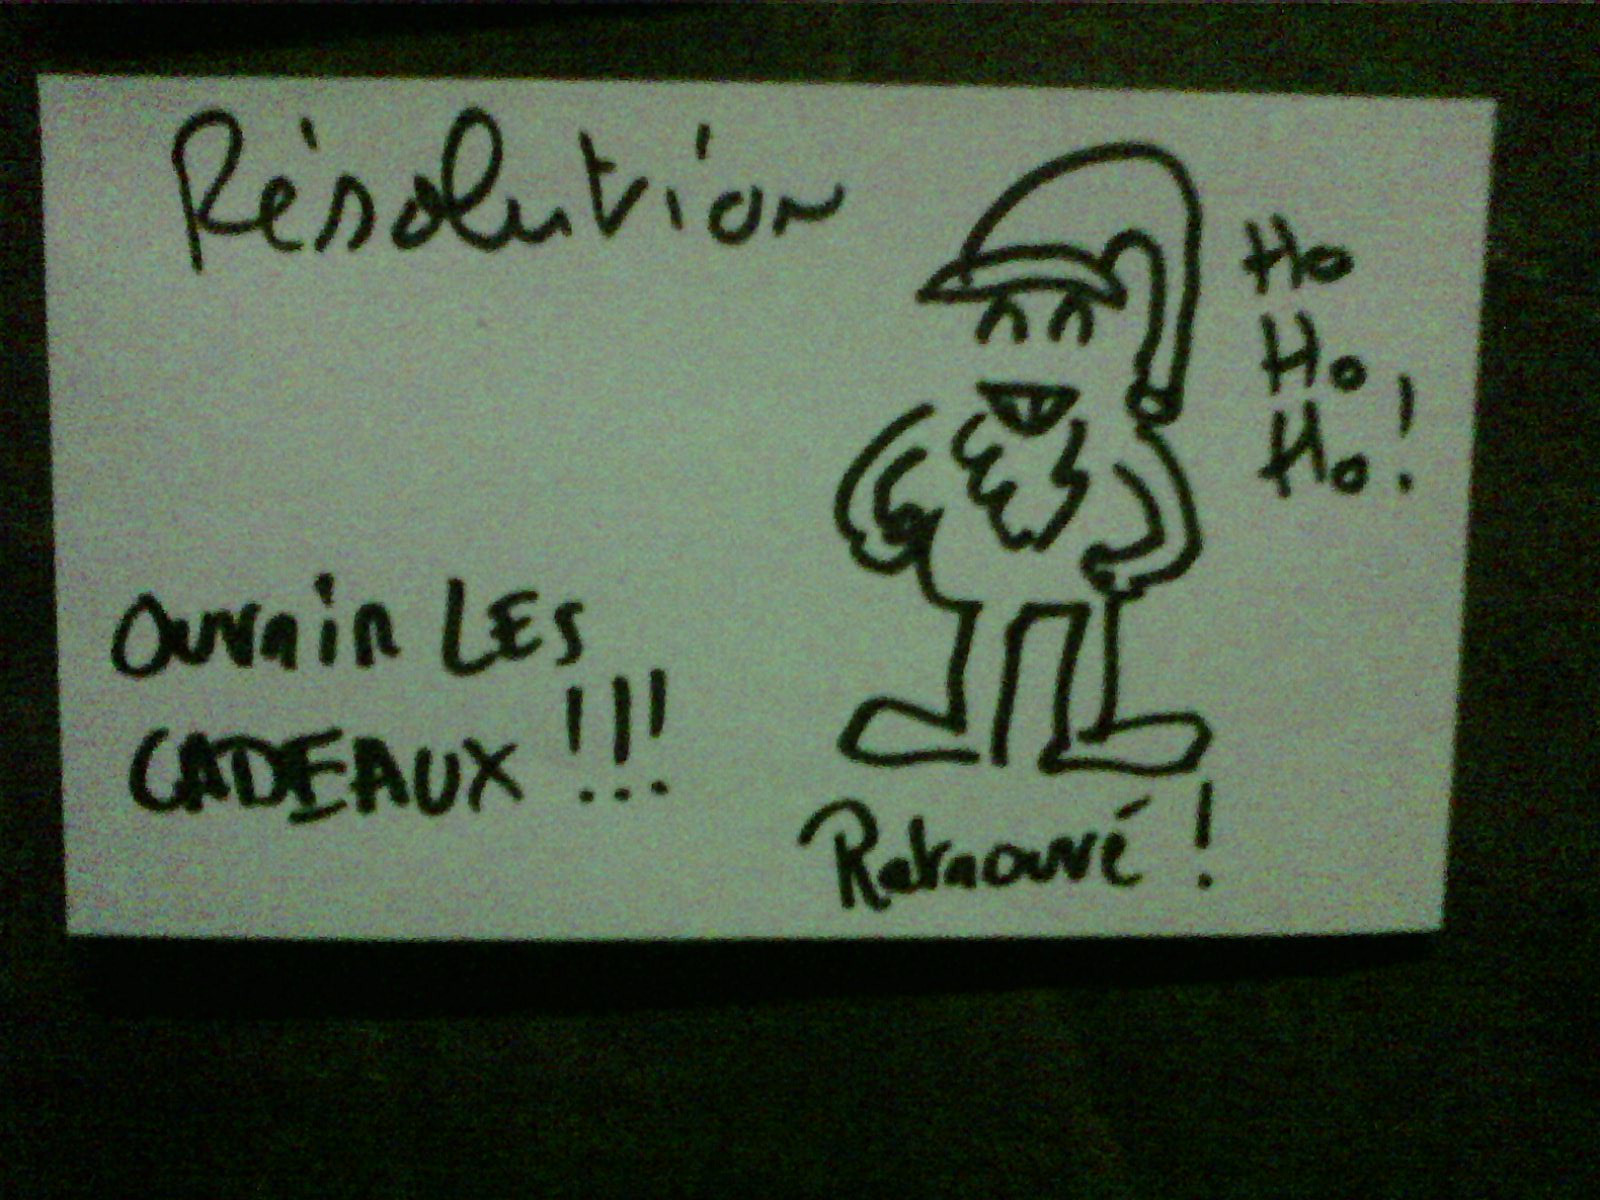 Résolution
Ho
Ho
Ho!
Ouvrir LES
CADEAUX !!!
Retrouvé !